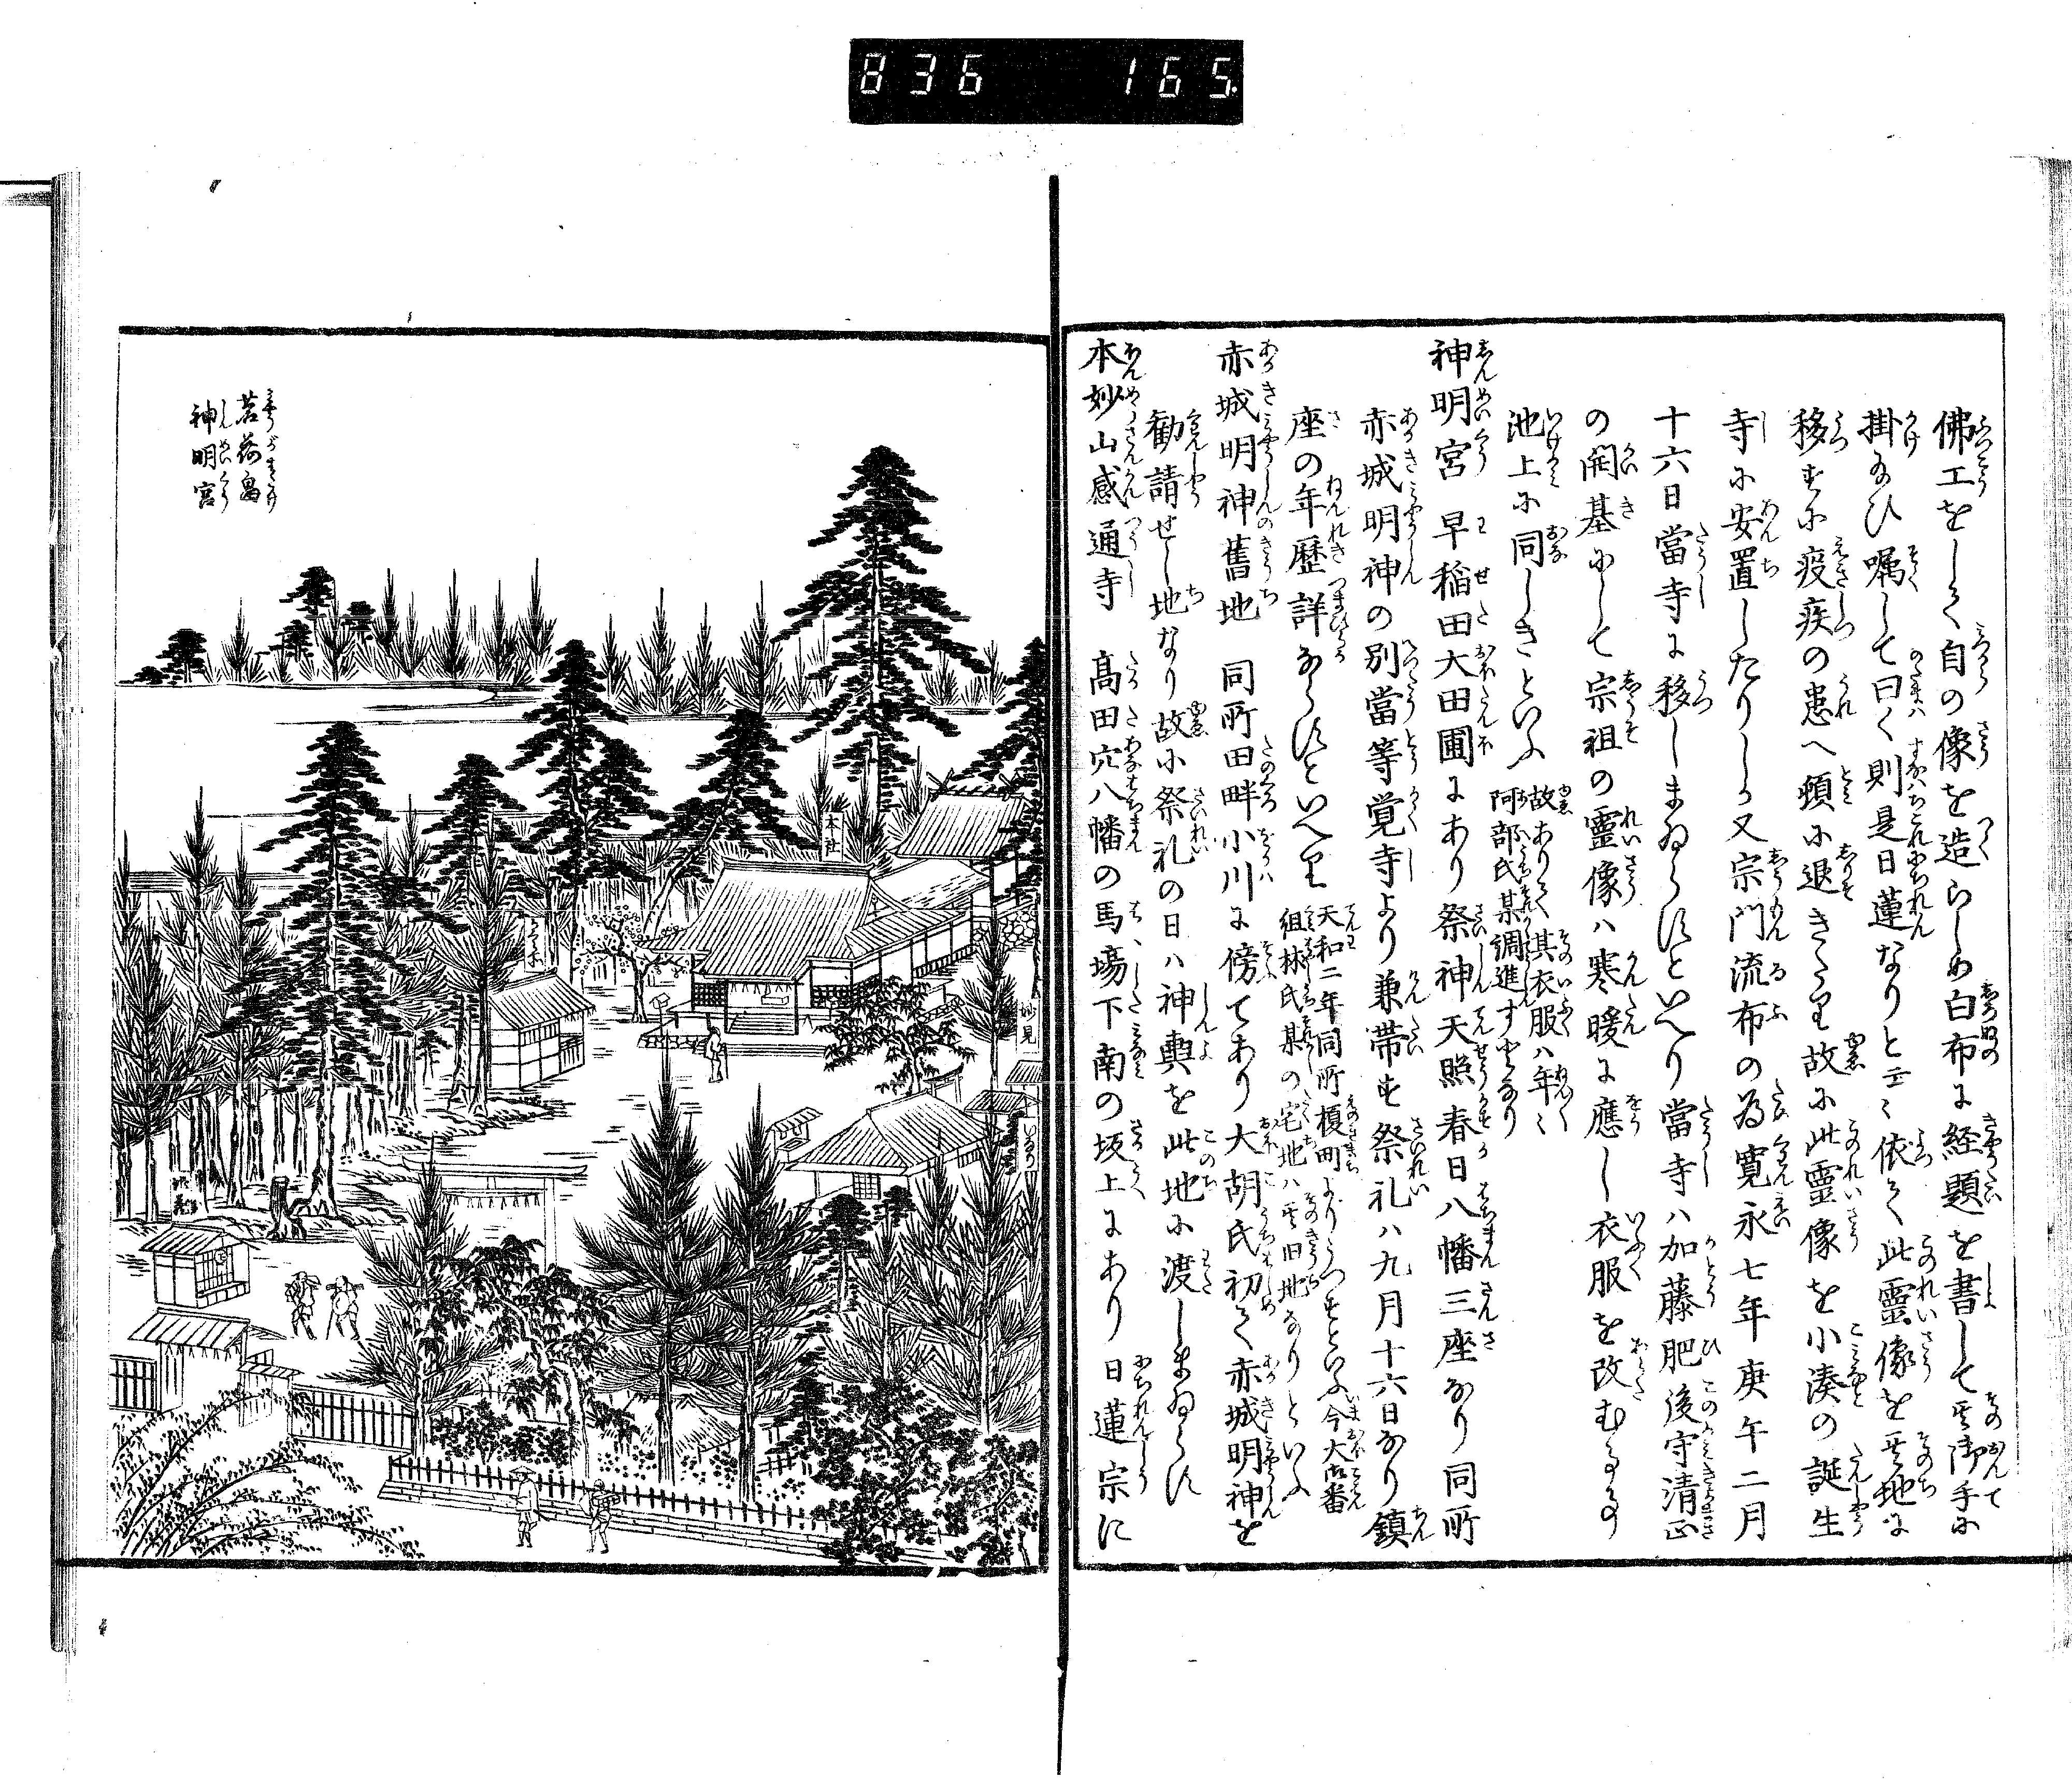 836 165.
佛工をして自の像を造らしめ白布に経題を書して其御手に
掛給ひ嘱して曰く則是日蓮なりと云々依て此霊像を其地に
移すに疫疾の患へ頓に退きたり故に此霊像を小湊の誕生
寺に安置したりしか又宗門流布の為寛永七年庚午二月
十六日當寺に移しまゐらすといへり當寺ハ加藤肥後守清正
の開基にして宗祖の霊像ハ寒暖に應し衣服を改むる事
池上に同しきといふ
故ありて其衣服ハ年々
阿部氏某調進す
神明宮 早稲田大田圃にあり祭神天照春日八幡三座なり同所
赤城明神の別當等覚寺より兼帯す祭礼ハ九月十六日なり鎮
座の年歴詳ならすといへり
天和二年同所榎町よりうつすといふ今大御番
組林氏某の宅地ハ其旧地なりといふ
赤城明神舊地 同所田畔小川に傍てあり大胡氏初て赤城明神を
勧請せし地なり故に祭礼の日ハ神輿を此地に渡しまゐらす
本妙山感通寺 髙田穴八幡の馬場下南の坂上にあり日蓮宗に
茗荷畠
神明宮
本社
妙見
いなり